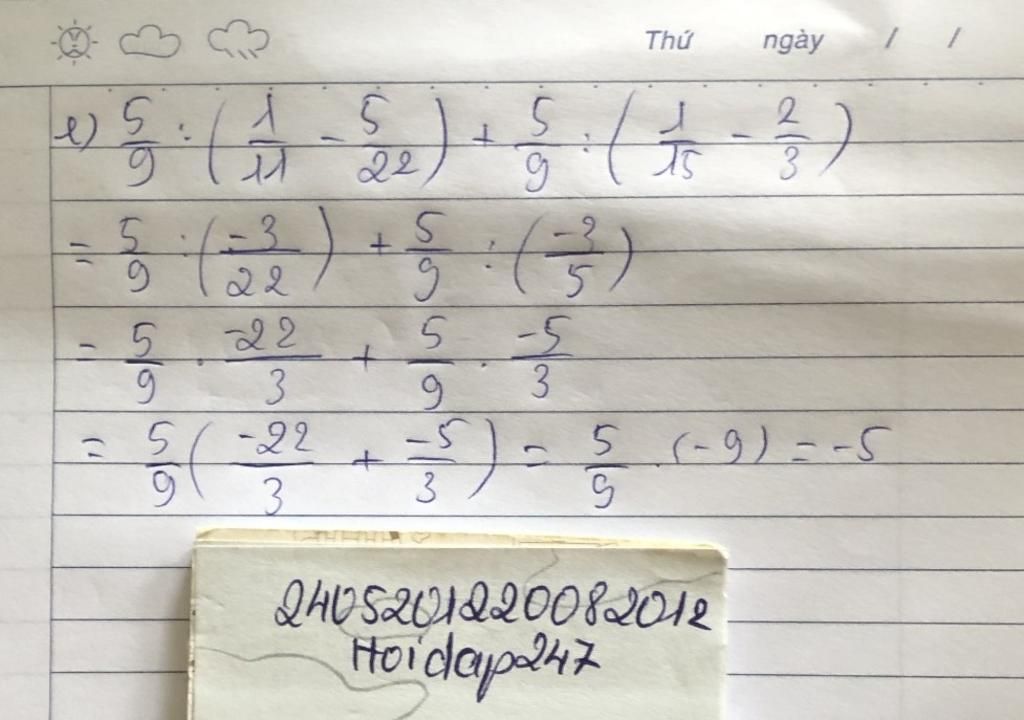 Thứ ngày / /
e) 5/9 : (1/11 - 5/22) + 5/9 : (1/15 - 2/3)
= 5/9 : (-3/22) + 5/9 : (-3/5)
= 5/9 . -22/3 + 5/9 . -5/3
= 5/9 (-22/3 + -5/3) = 5/9 . (-9) = -5
2405201220082012
Hoidap247